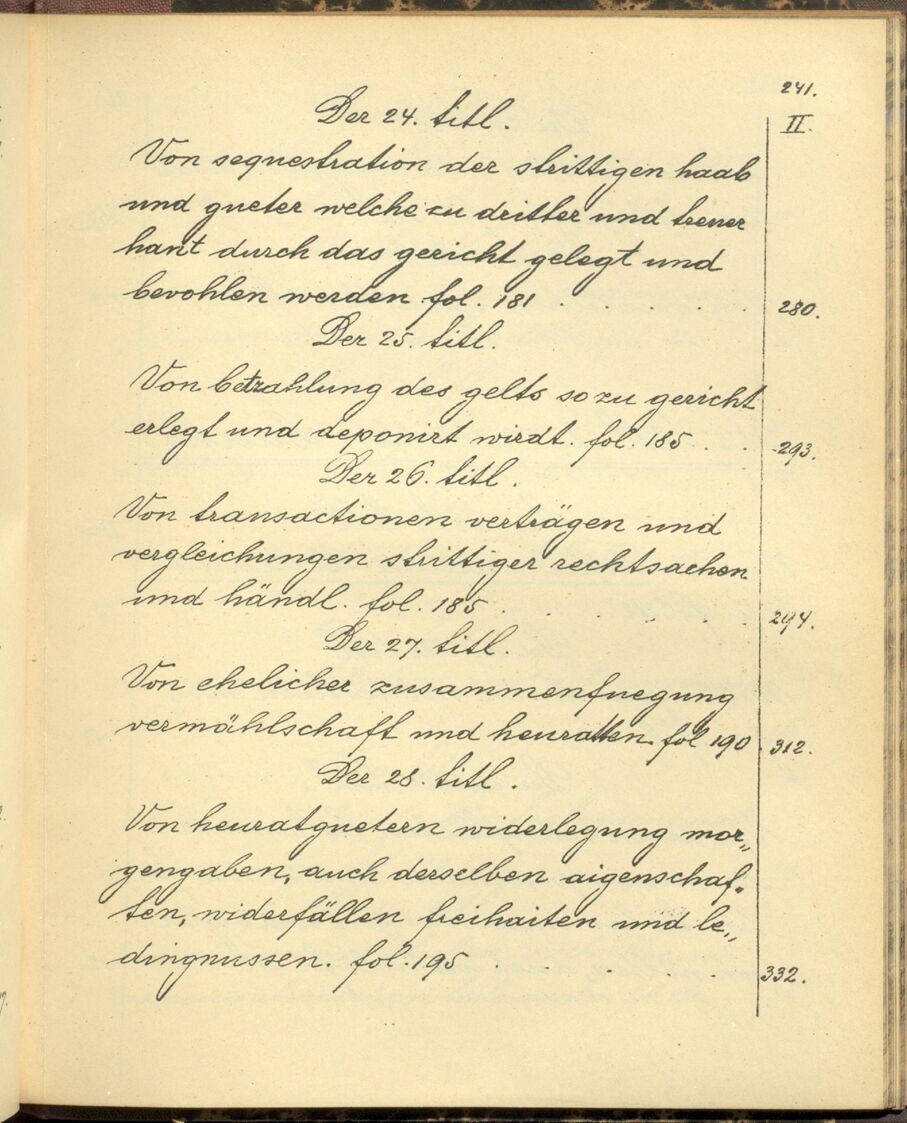 241.
Der 24. titl.
II.
Von sequestration der strittigen haab
und gueter welche zu dritter und treuer
hant durch das gericht gelegt und
bevohlen werden fol. 181 . . . . . 280.
Der 25. titl.
Von betzahlung des gelts so zu gericht
erlegt und deponirt wirdt. fol. 185 . . . 293.
Der 26. titl.
Von transactionen verträgen und
vergleichungen strittiger rechtsachen
und händl. fol. 185 . . . . . 294.
Der 27. titl.
Von ehelicher zusammenfuegung
vermählschaft und heuratten. fol 190. 312.
Der 28. titl.
Von heuratguetern widerlegung mor„
gengaben, auch derselben aigenschaf„
ten, widerfällen freihaiten und le„
dingnussen. fol. 195 . . . . . 332.